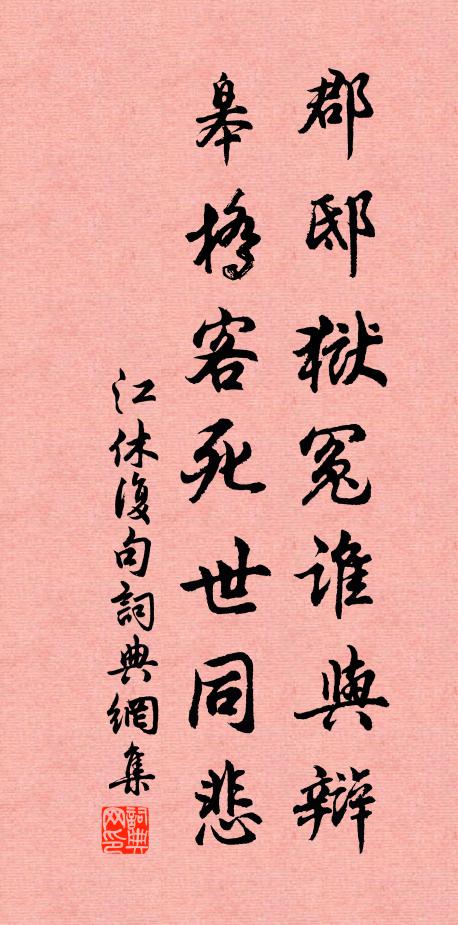 郡邸獄冤誰與辯
皋橋客死世同悲
江休復句詞典網集
詞典网印